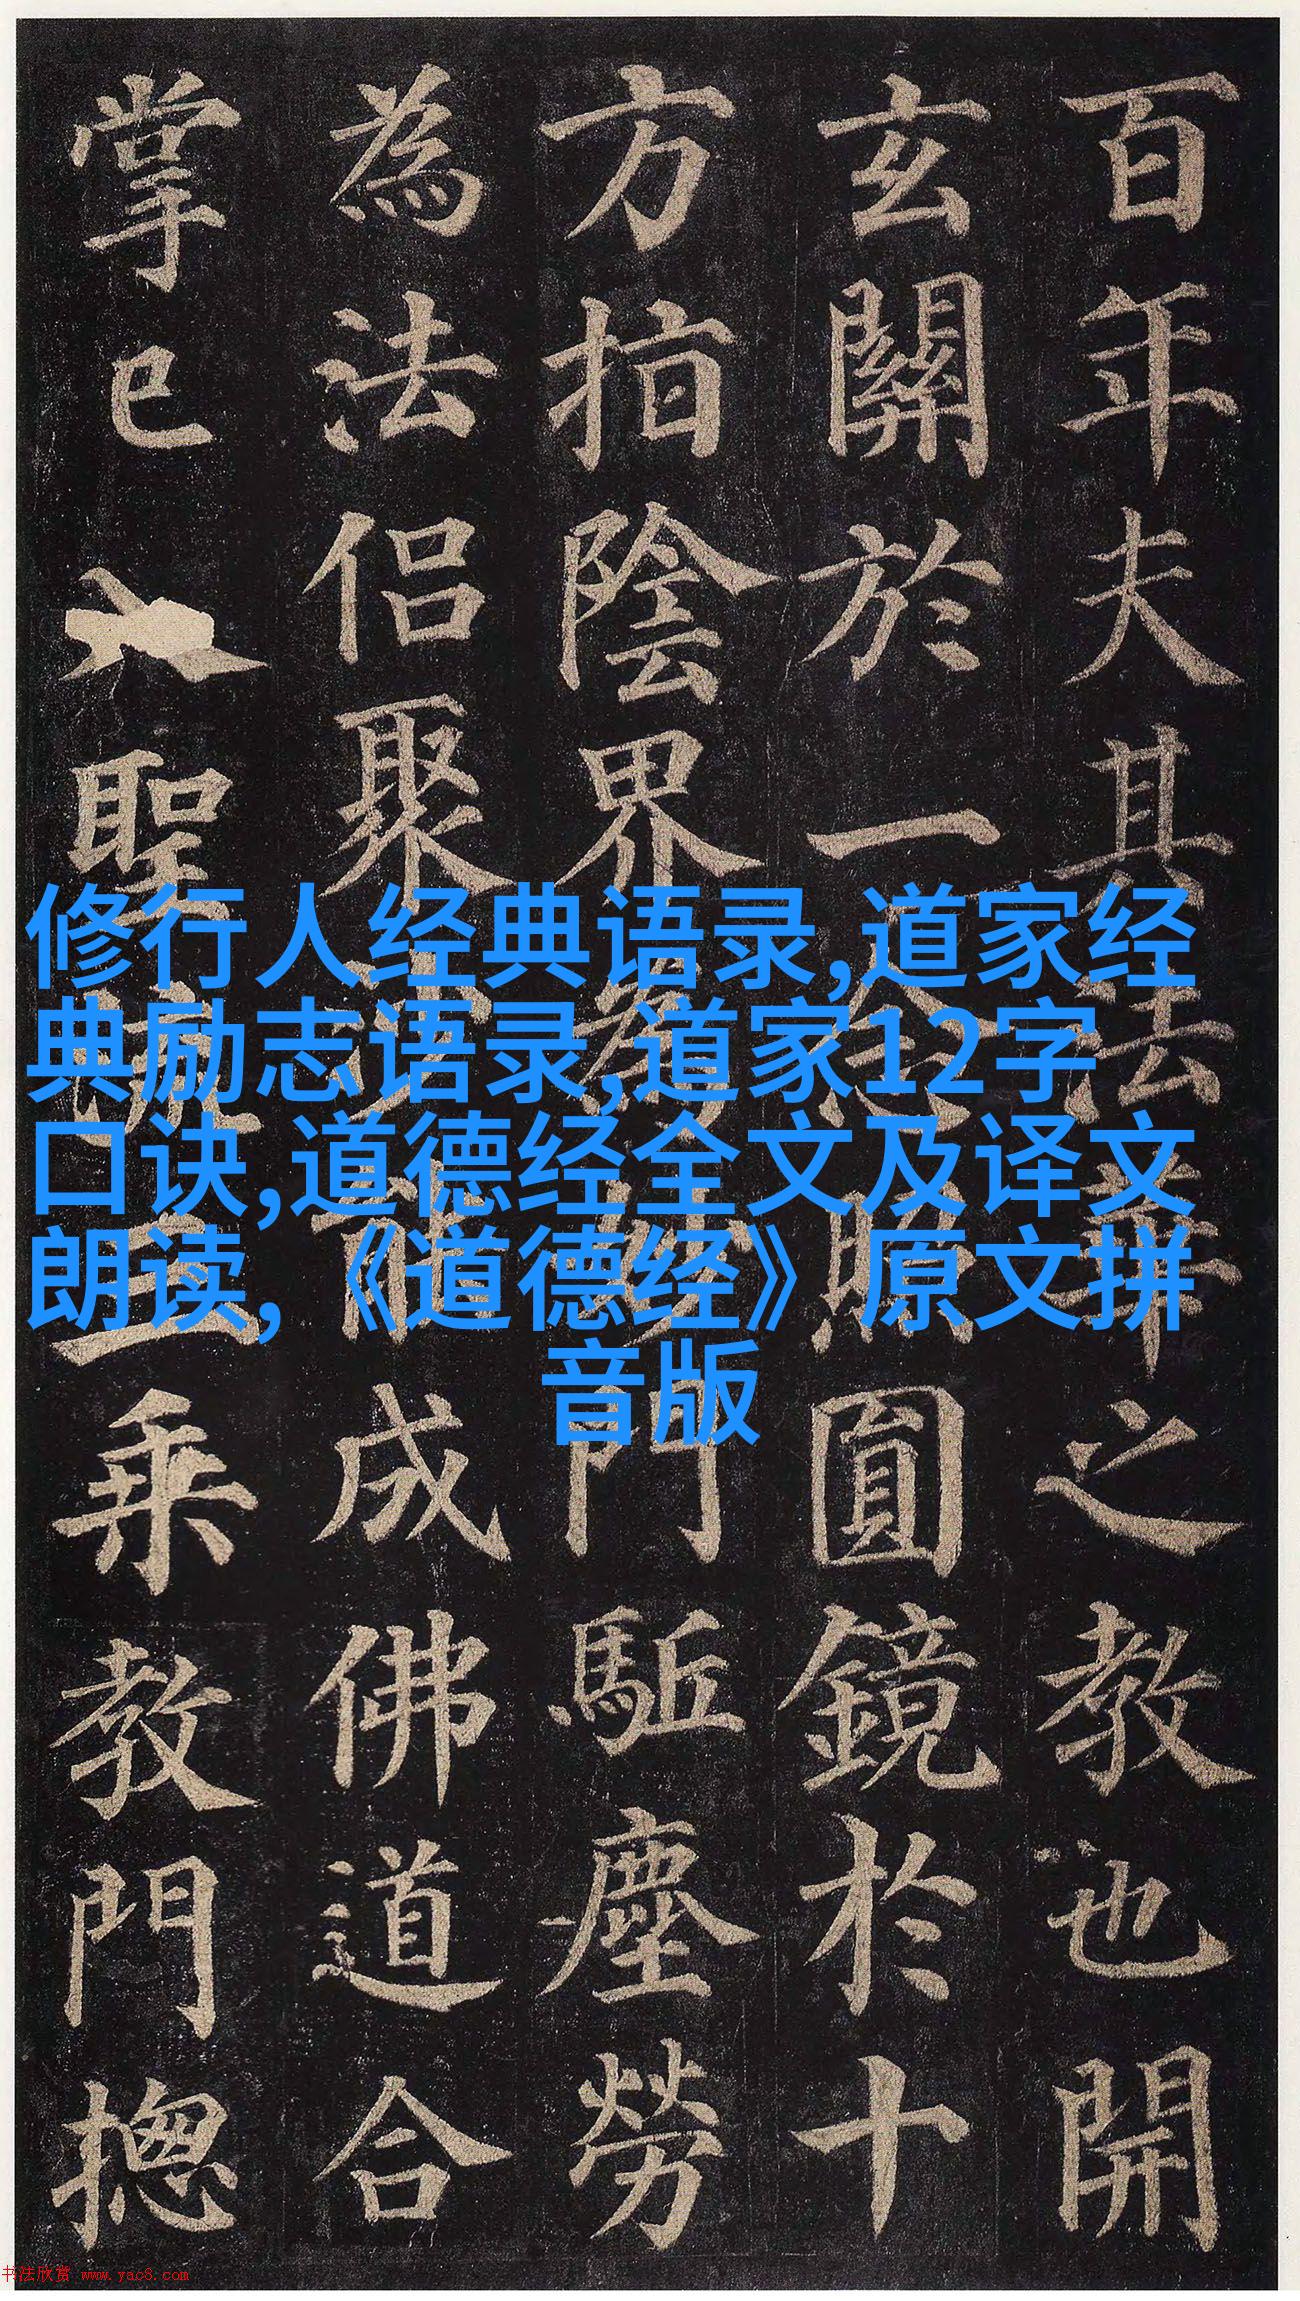 百年夫其法華之教也開
玄關於一念照圓鏡於十
方指陰界為妙門駈塵勞
為法侶聚沙能成佛道合
掌已聖流三乘教門揔
修行人经典语录,道家经
典励志语录,道家12字
口诀,道德经全文及译文
朗读,《道德经》原文拼
音版
书法欣赏 www.yac8.com